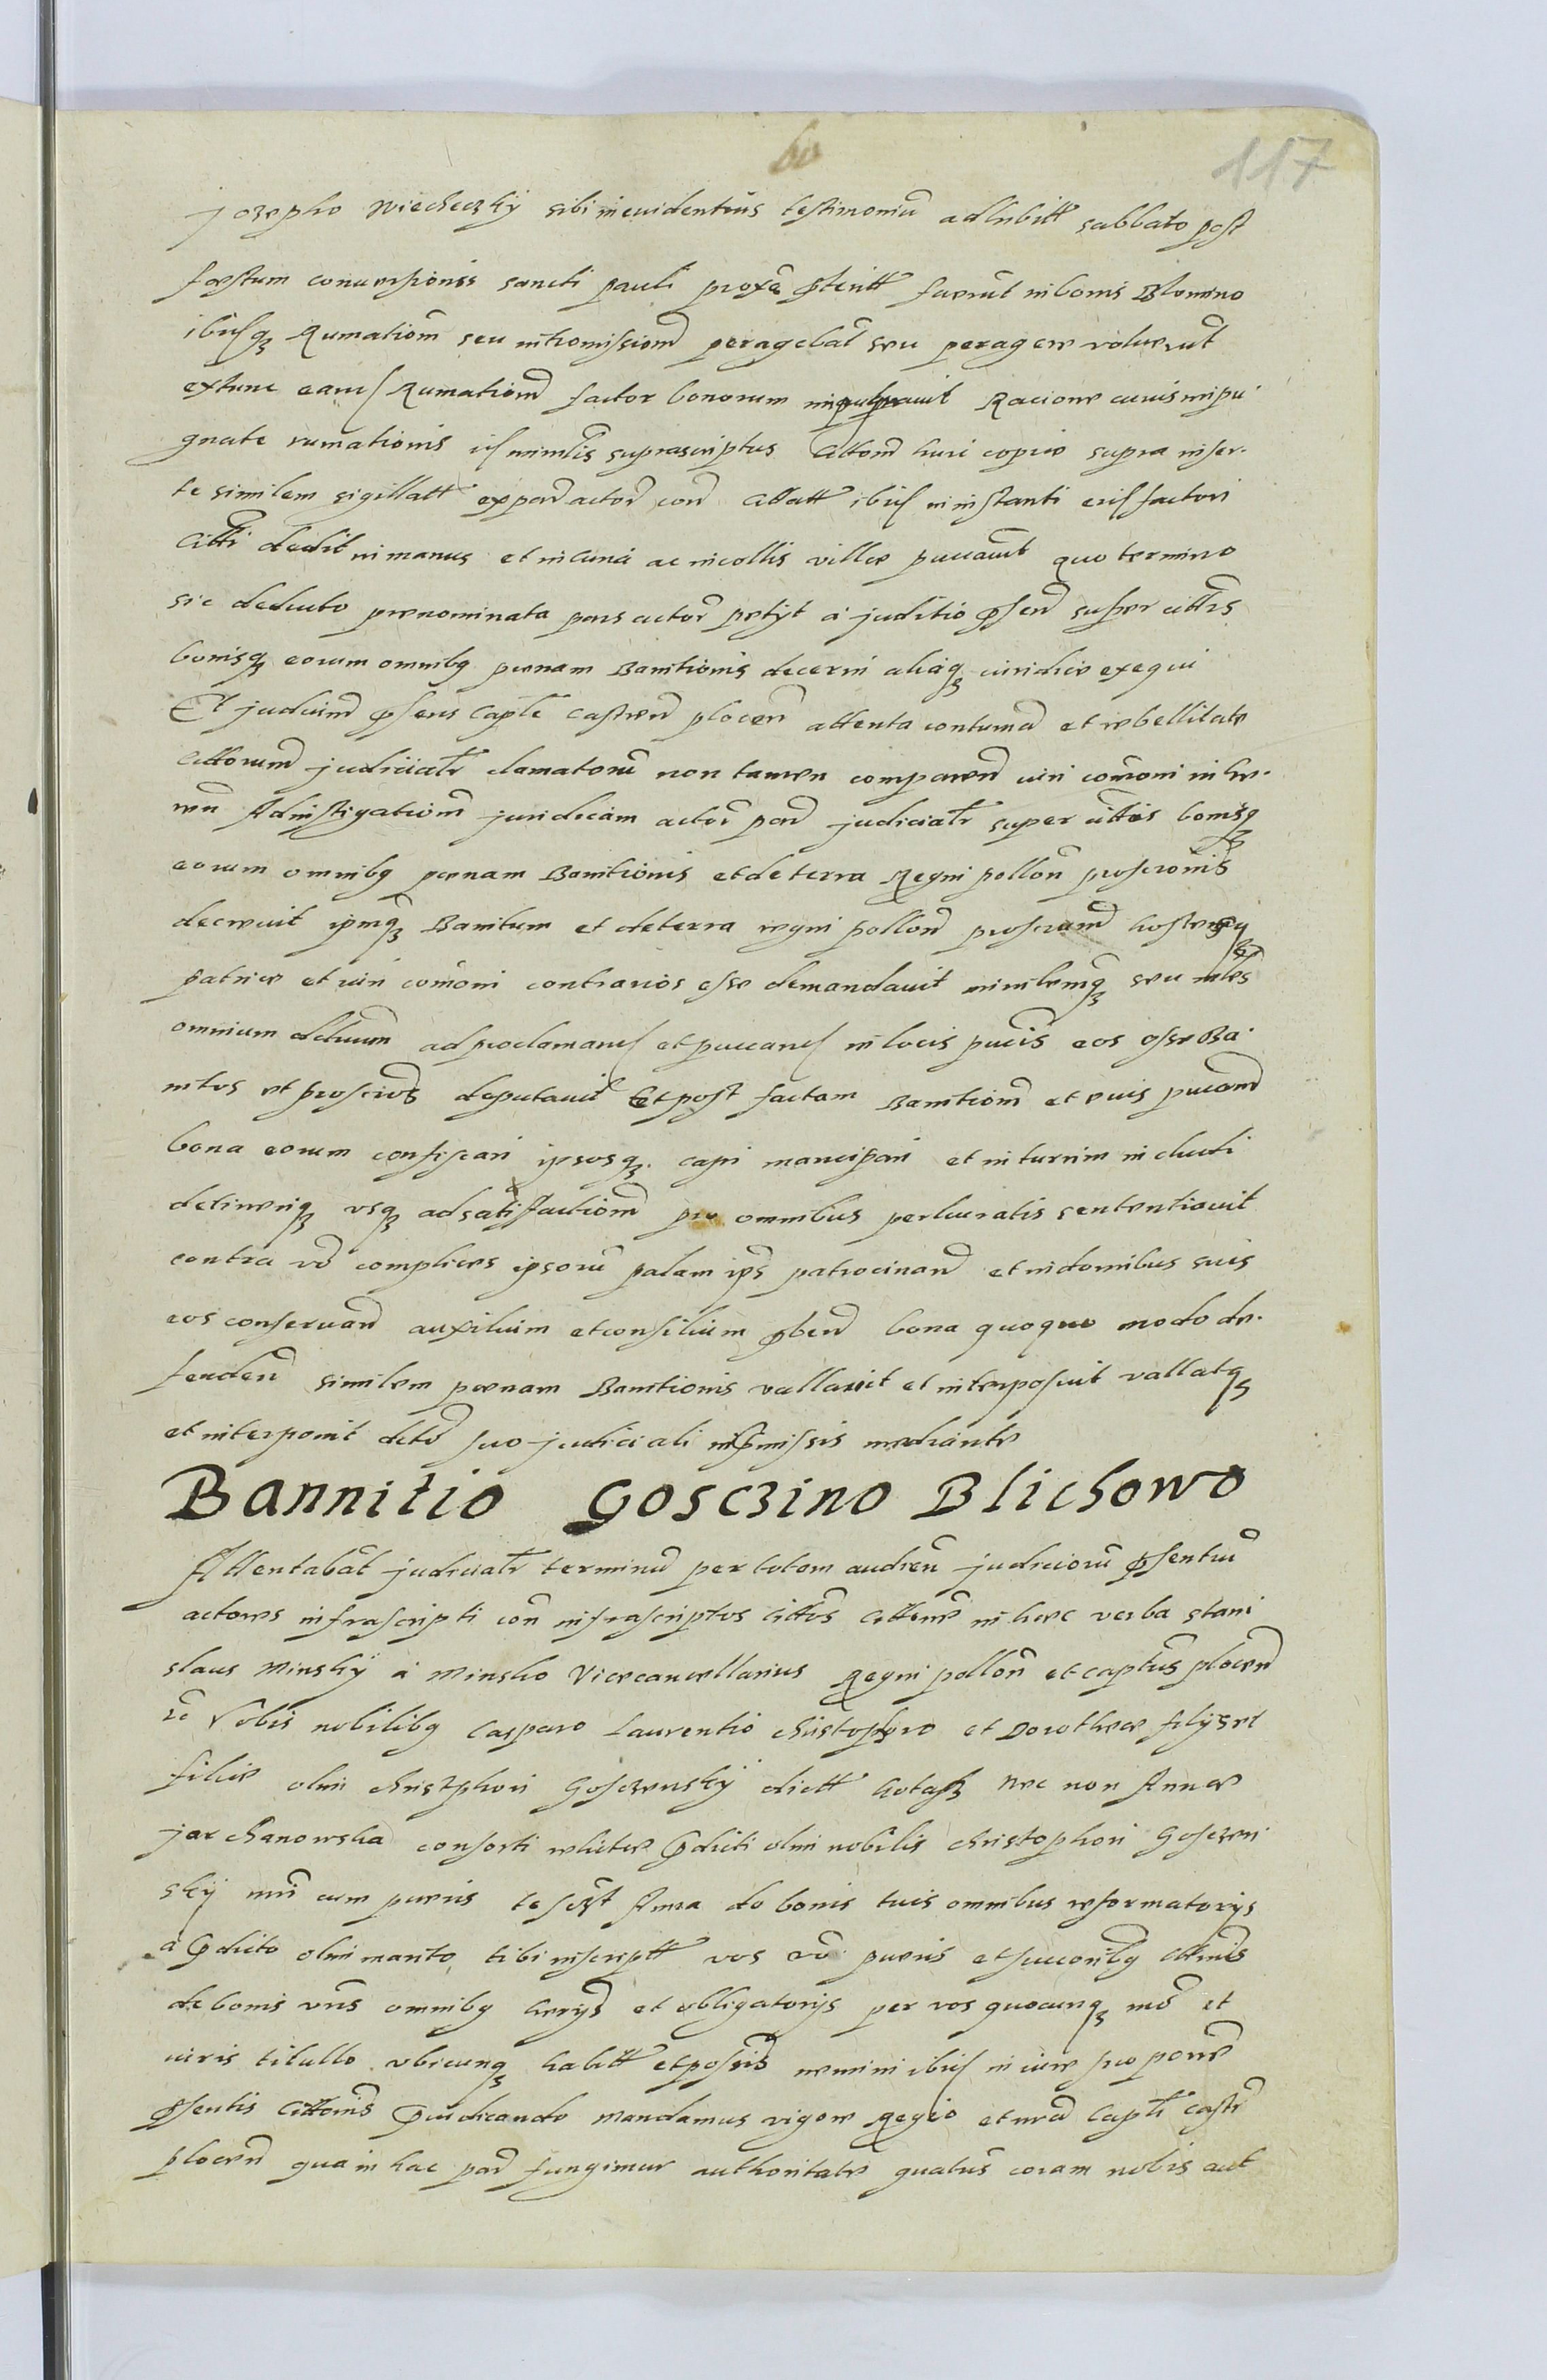 117
jozepho wiecheczky sibi in euidentius testimoniū adhibitt sabbato post
festum conuersionis sancti pauli proxē pteritt fuerūt in bonis Blomino
ibusq Rumationē seu intromissionē peragebāt seu peragere voluerūt
extunc eand Rumationē factor bonorum impugnauit Racione cuius impu
gnate rumationis id ministlis suprascriptus cittonē huic copie supra inser-
te similem sigillatt ex parte actorē con citatt ibid in instanti eid factori
citti dedit in manus et in curia ac in collis ville puccauit quo termino
sic deducto prenominata pars actor petyt a juditio psen super cittis
bonisq eorum omnibq penam Banitionis decerni aliaq iuridice exequi
Et judicium psens Caple castren plocen attenta contuma et rebellitate
cittorum judicialr clamatorū non tamen comparen iuri comōni in he-
ren Ad instigationē juridicam actor par judicialr super cittis bonisq
eorum omnibq penam Banitionis et de terra Regni pollon proscronis
decreuit ipmq Banitum et de terra regni pollon proscram hostesq
patrie et iuri comōni contrarios esse demandauit mintremq seu mtres
omnium ad proclamand et puccand in locis pucis eos esse Ba-
nitos et proscros deputauit Et post factam Banitionē et euis pucam
bona eorum confiscari ipsosq capi mancipari et in turrim includi
detinereq vsq ad satisfactionē pro omnibus perlucratis sententiauit
contra vo complices ipsorū palam ips patrocinan et in domibus suis
eos conseruan auxilium et consilium pben bona quoquo modo de-
fenden similem penam Banitionis vallauit et interposuit vallatq
et interponit decto suo judiciali in pmissis mediante
Bannitio Gosczino Blichowo
Attentabāt judicialr terminū per totam audien judiciorū psentiū
actores infrascripti con infrascriptos cittos cittone in hec verba stani
slaus Minsky a Minsko Vicecancellarius Regni pollon et captus plocen
vobis nobilibq Casparo Laurentio christophoro et Dorothee filys et
filie olim christphori Gosczensky dictt Nec non Anne
jarchanowska consorti relicte pdicti olim nobilis christophori Gosczen
sky cum pueris te Anna de bonis tuis omnibus reformatorys
a pdicto olim marito tibi inscriptt vos vo pueris et succonibq
de bonis vris omnibq herys et obligatorys per vos quocunq mo et
iuris titullo vbicunq habitt et possis nemini ibid in iure suo pone
psentis cittonis piudicando mandamus vigore Regio et nra Capli castr
plocen qua in hac par fungimur authoritate quatus coram nobis aut